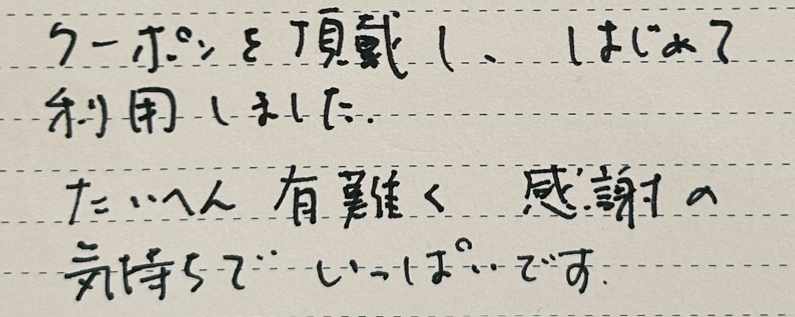 クーポンを頂戴し、はじめて
利用しました.
たいへん有難く 感謝の
気持ちで いっぱいです.